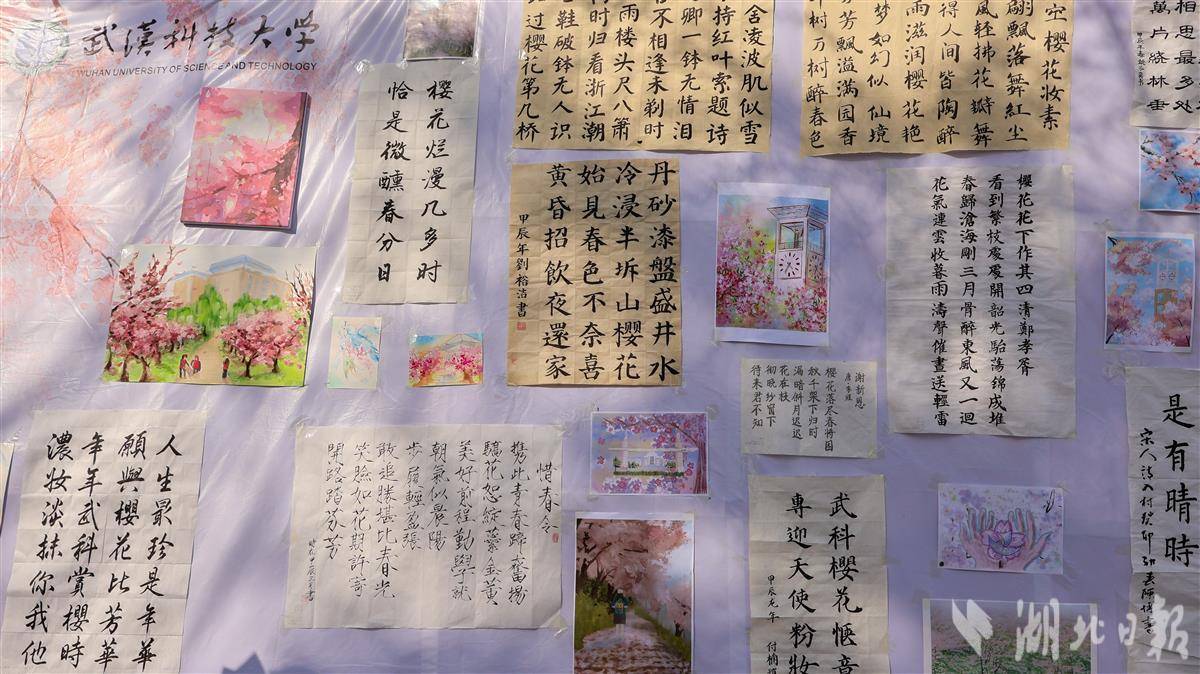 武漢科技大学
WUHAN UNIVERSITY OF SCIENCE AND TECHNOLOGY
樱花烂漫几多时
恰是微醺春分日
舍凌波肌似雪
持红叶索题诗
卿一钵无情泪
不相逢未剃时
雨楼头尺八箫
时归看浙江潮
鞋破钵无人识
过樱花第几桥
空樱花妆素
翩飘落舞紅尘
風轻拂花瓣舞
得人间皆陶醉
雨滋润樱花艳
梦如幻似仙境
芳飘溢满园香
树万树醉春色
相思最多处
萬片繞林垂
丹砂漆盤盛井水
冷浸半坼山櫻花
始見春色不奈喜
黄昏招飲夜還家
甲辰年劉裕洁書
櫻花花下作其四清鄭孝胥
看到繁枝處處開韶光駘荡錦成堆
春歸滄海剛三月骨醉東風又一迴
花氣連雲收暮雨濤聲催晝送輕雷
谢新恩
唐李煜
樱花落尽春将困
秋千架下归时
漏暗斜月迟迟
花在枝
彻晓纱窗下
待来君不知
人生最珍是年華
願與櫻花比芳華
年年武科賞櫻時
濃妝淡抹你我他
惜春令
攜此青春踏奮揚
驕花恕綻蕊金黄
美好前程勤學就
朝氣似晨陽
步履輕盈張
敢追勝堪比春光
笑臉如花期許奇
開路踏芬芳
武科樱花惬意
專迎天使粉妝
甲辰龙年
是有晴時
湖北日報